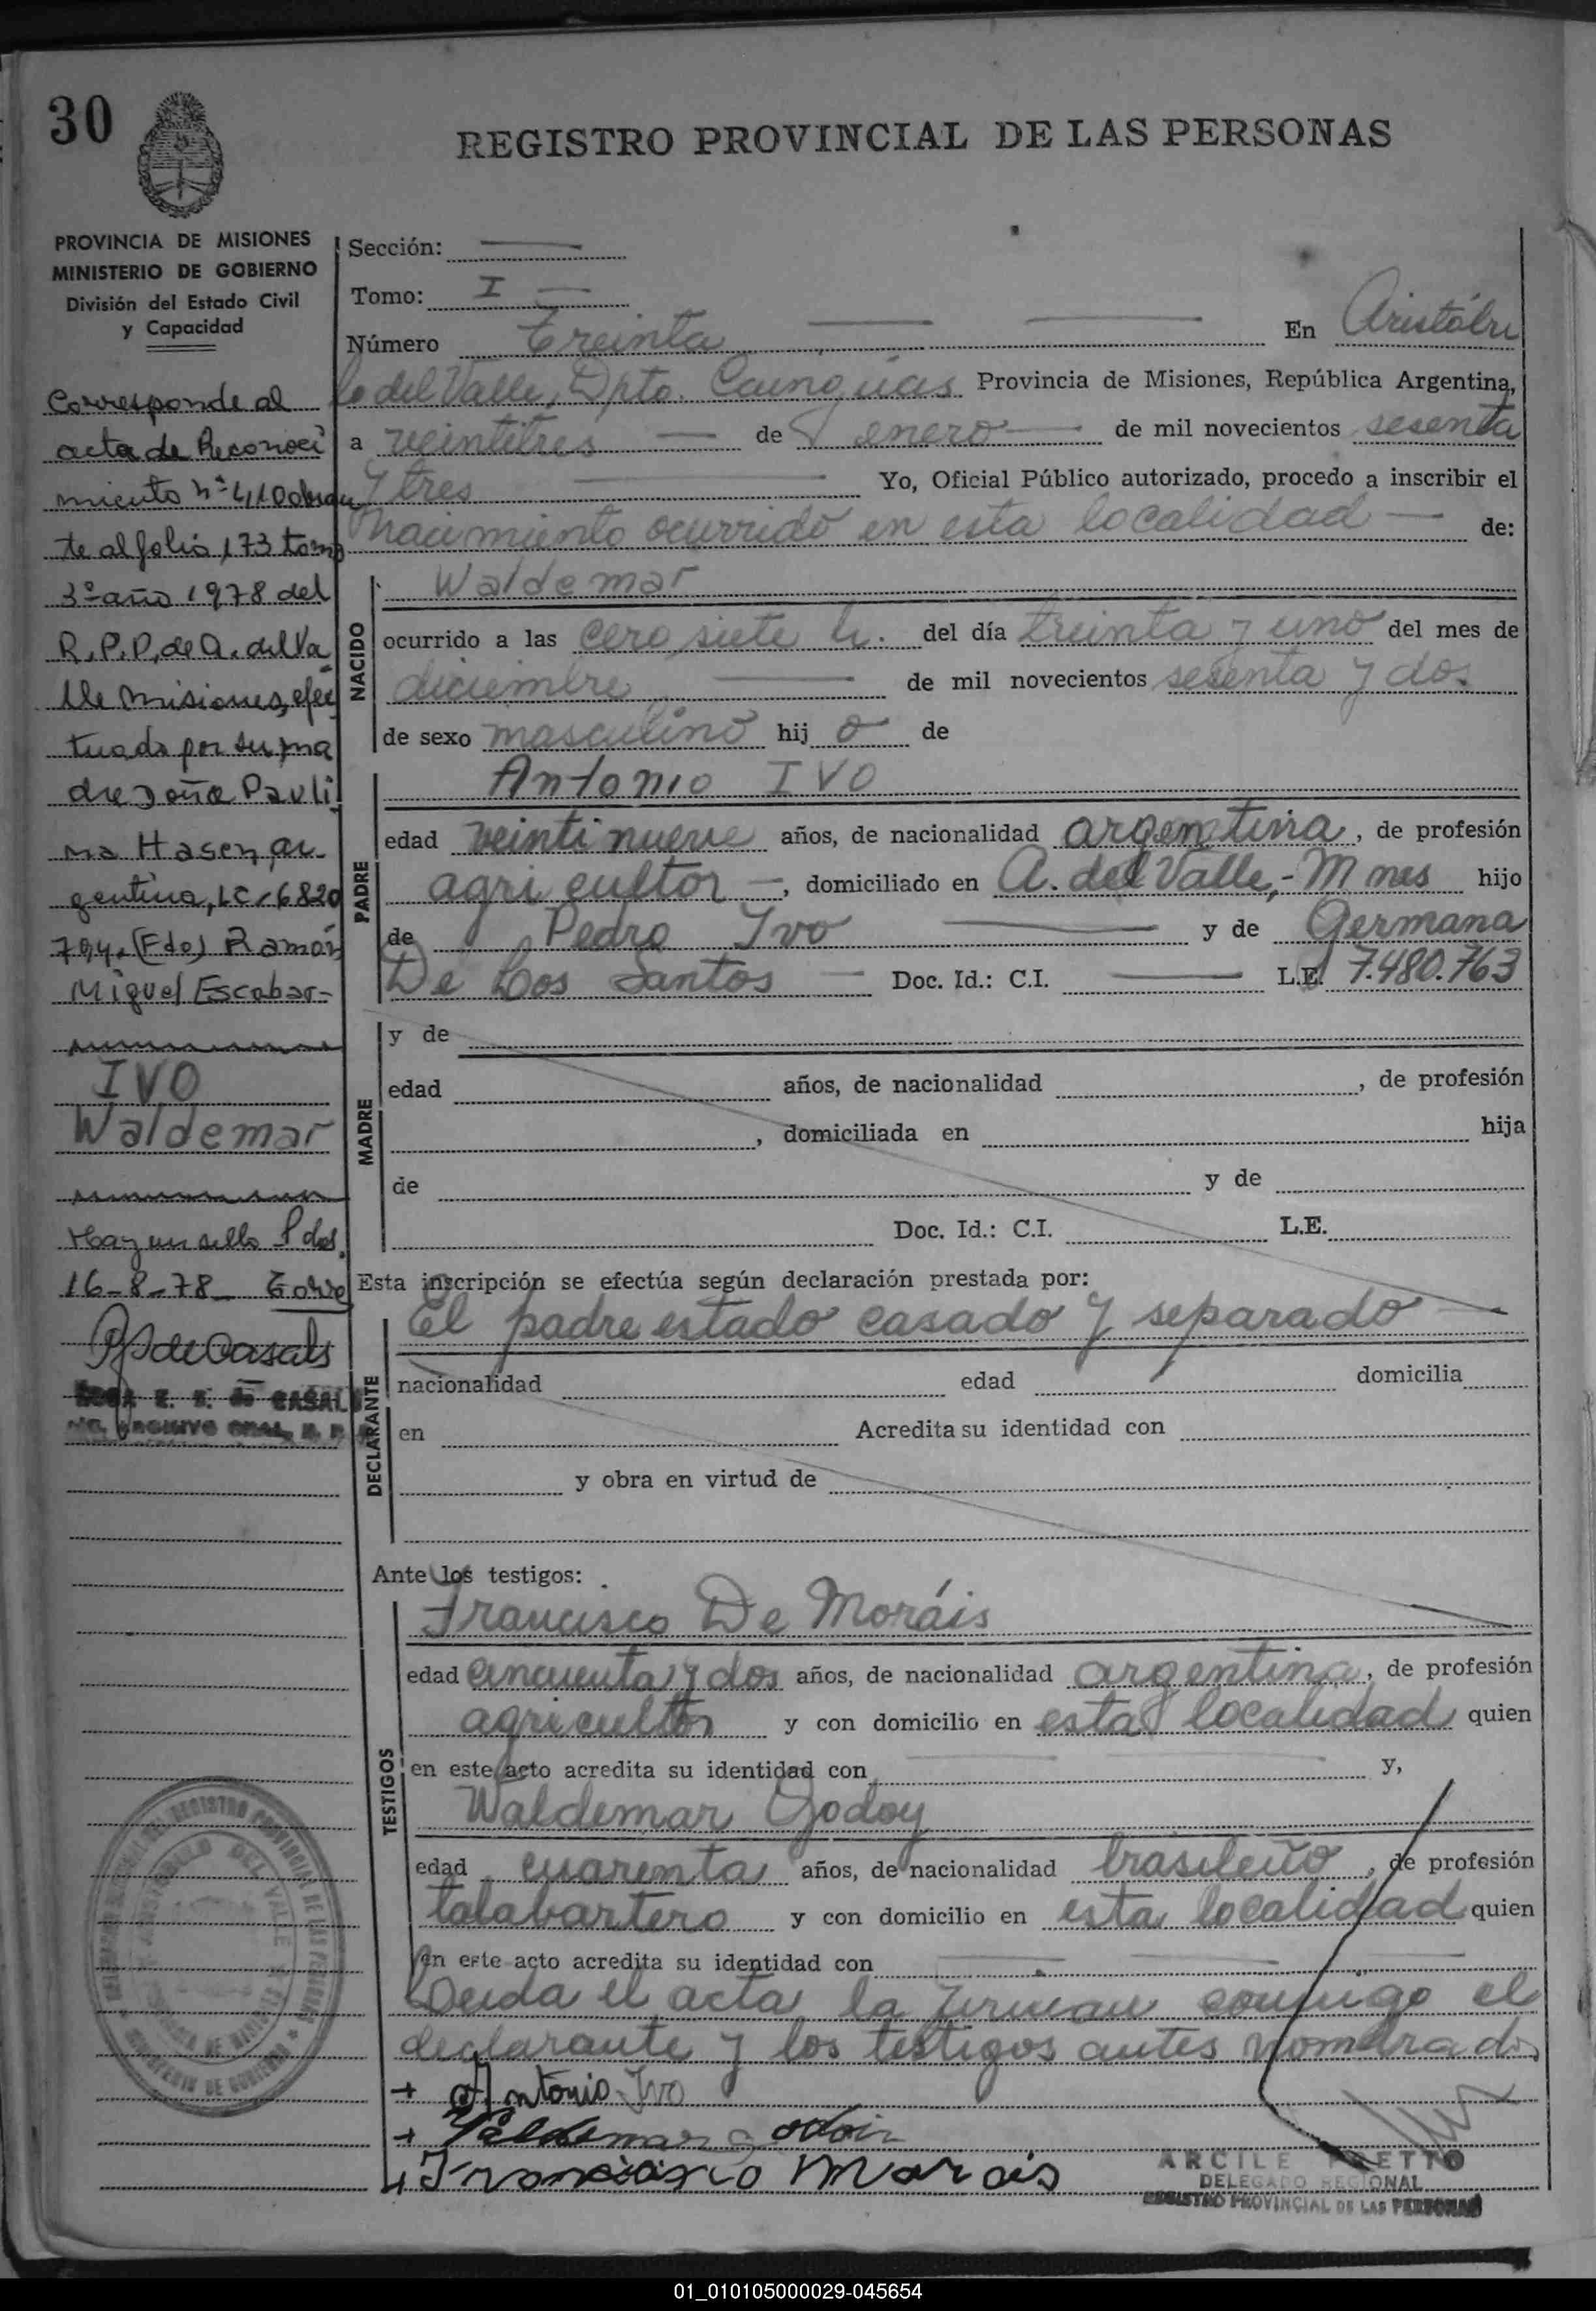 30
REGISTRO PROVINCIAL DE LAS PERSONAS
PROVINCIA DE MISIONES
MINISTERIO DE GOBIERNO
División del Estado Civil
y Capacidad
Corresponde al
acta de Reconoci
miento nº 410 obran
te al folio 173 tomo
3º año 1978 del
R.P.P. de A. del Va
lle Misiones, efec
tuada por su ma
dre doña Pauli
na Hasen, ar
gentina, LC. 6820
794. (Fdo) Ramón
Miguel Escobar-
IVO
Waldemar
Hay un sello Pdas.
16-8-78_
de CASAL
Sección:
Tomo: I
Número Treinta En Aristóbu
lo del Valle, Dpto. Cainguás Provincia de Misiones, República Argentina,
a veintitres de enero de mil novecientos sesenta
y tres Yo, Oficial Público autorizado, procedo a inscribir el
nacimiento ocurrido en esta localidad de:
NACIDO
Waldemar
ocurrido a las cero siete h. del día treinta y uno del mes de
diciembre de mil novecientos sesenta y dos
de sexo masculino hij o de
PADRE
Antonio IVO
edad veintinueve años, de nacionalidad argentina, de profesión
agricultor, domiciliado en A. del Valle,- Mnes hijo
de Pedro Ivo y de Germana
De Los Santos Doc. Id.: C.I. L.E. 7.480.763
MADRE
y de
edad años, de nacionalidad , de profesión
, domiciliada en hija
de y de
Doc. Id.: C.I. L.E.
Esta inscripción se efectúa según declaración prestada por:
DECLARANTE
El padre estado casado y separado
nacionalidad edad domicilia
en Acredita su identidad con
y obra en virtud de
Ante los testigos:
TESTIGOS
Francisco De Moráis
edad cincuenta y dos años, de nacionalidad argentina, de profesión
agricultor y con domicilio en esta localidad quien
en este acto acredita su identidad con y,
Waldemar Godoy
edad cuarenta años, de nacionalidad brasileño, de profesión
talabartero y con domicilio en esta localidad quien
en este acto acredita su identidad con
Leída el acta la firman conmigo el
declarante y los testigos antes nombrados
+ Antonio Ivo
+ Valdemar godoi
+ Morais
ARCILE
DELEGADO REGIONAL
REGISTRO PROVINCIAL DE LAS PERSONAS
01_010105000029-045654